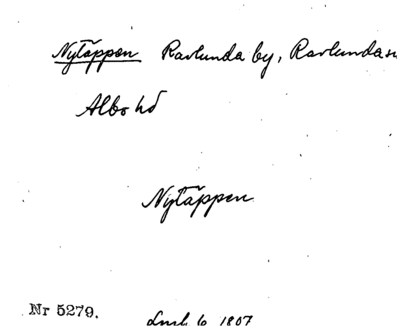 Nytäppan Ravlunda by, Ravlunda sn
Albo hd
Nytäppan
Nr 5279.
Lmt 6 1807